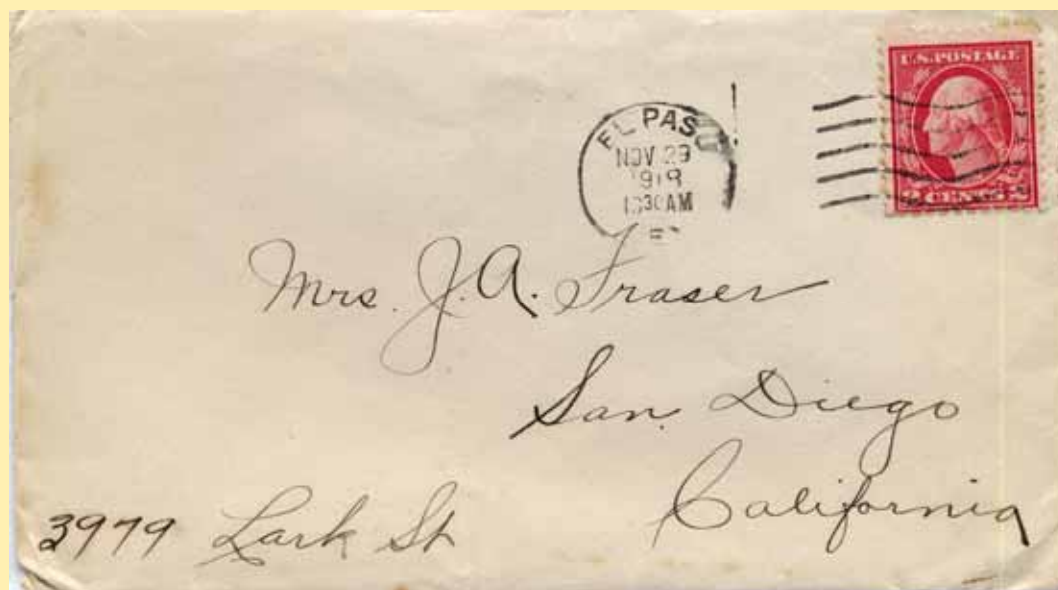 U.S. POSTAGE
2 CENTS 2
EL PASO
NOV 29
1918
1030 AM
Mrs. J. A. Fraser
San Diego
California
3979 Lark St